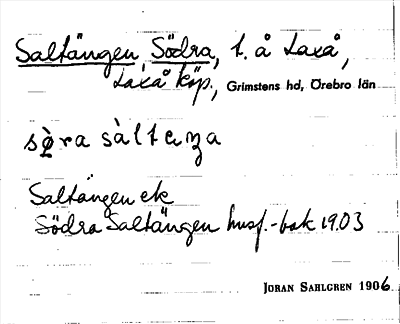 Saltängen, Södra, t. å Laxå,
Laxå köp., Grimstens hd, Örebro län
sö̀ra sàltɛŋa
Saltängen ek
Södra Saltängen husf.-bok 1903
JORAN SAHLGREN 1906